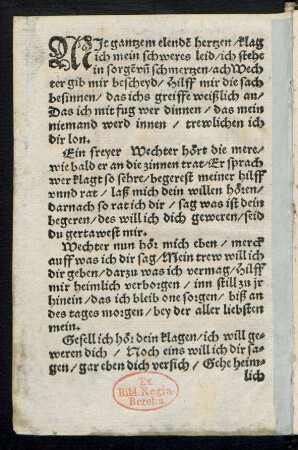 MIt gantzem elendē hertzen / klag
ich mein schweres leid / ich stehe
in sorgē vñ schmertzen / ach Wech
ter gib mir bescheyd / Hilff mir die sach
besinnen / das ichs greiffe weißlich an /
Das ich mit fug wer dinnen / das mein
niemand werd innen / trewlichen ich
dir lon.
Ein freyer Wechter hört die mere /
wie bald er an die zinnen trat / Er sprach
wer klagt so sehre / begerest meiner hilff
vnnd rat / laß mich dein willen hören /
darnach so rat ich dir / sag was ist dein
begeren / des will ich dich geweren / seid
du gertawest mir.
Wechter nun hör mich eben / merck
auff was ich dir sag / Mein trew will ich
dir geben / darzu was ich vermag / Hilff
mir heimlich verborgen / inn still zu jr
hinein / das ich bleib one sorgen / biß an
des tages morgen / bey der aller liebsten
mein.
Gesell ich hör dein klagen / ich will ge-
weren dich / Noch eins will ich dir sa-
gen / gar eben dich versich / Gehe heim-
lich
Ex
Bibl. Regia
Berolin.